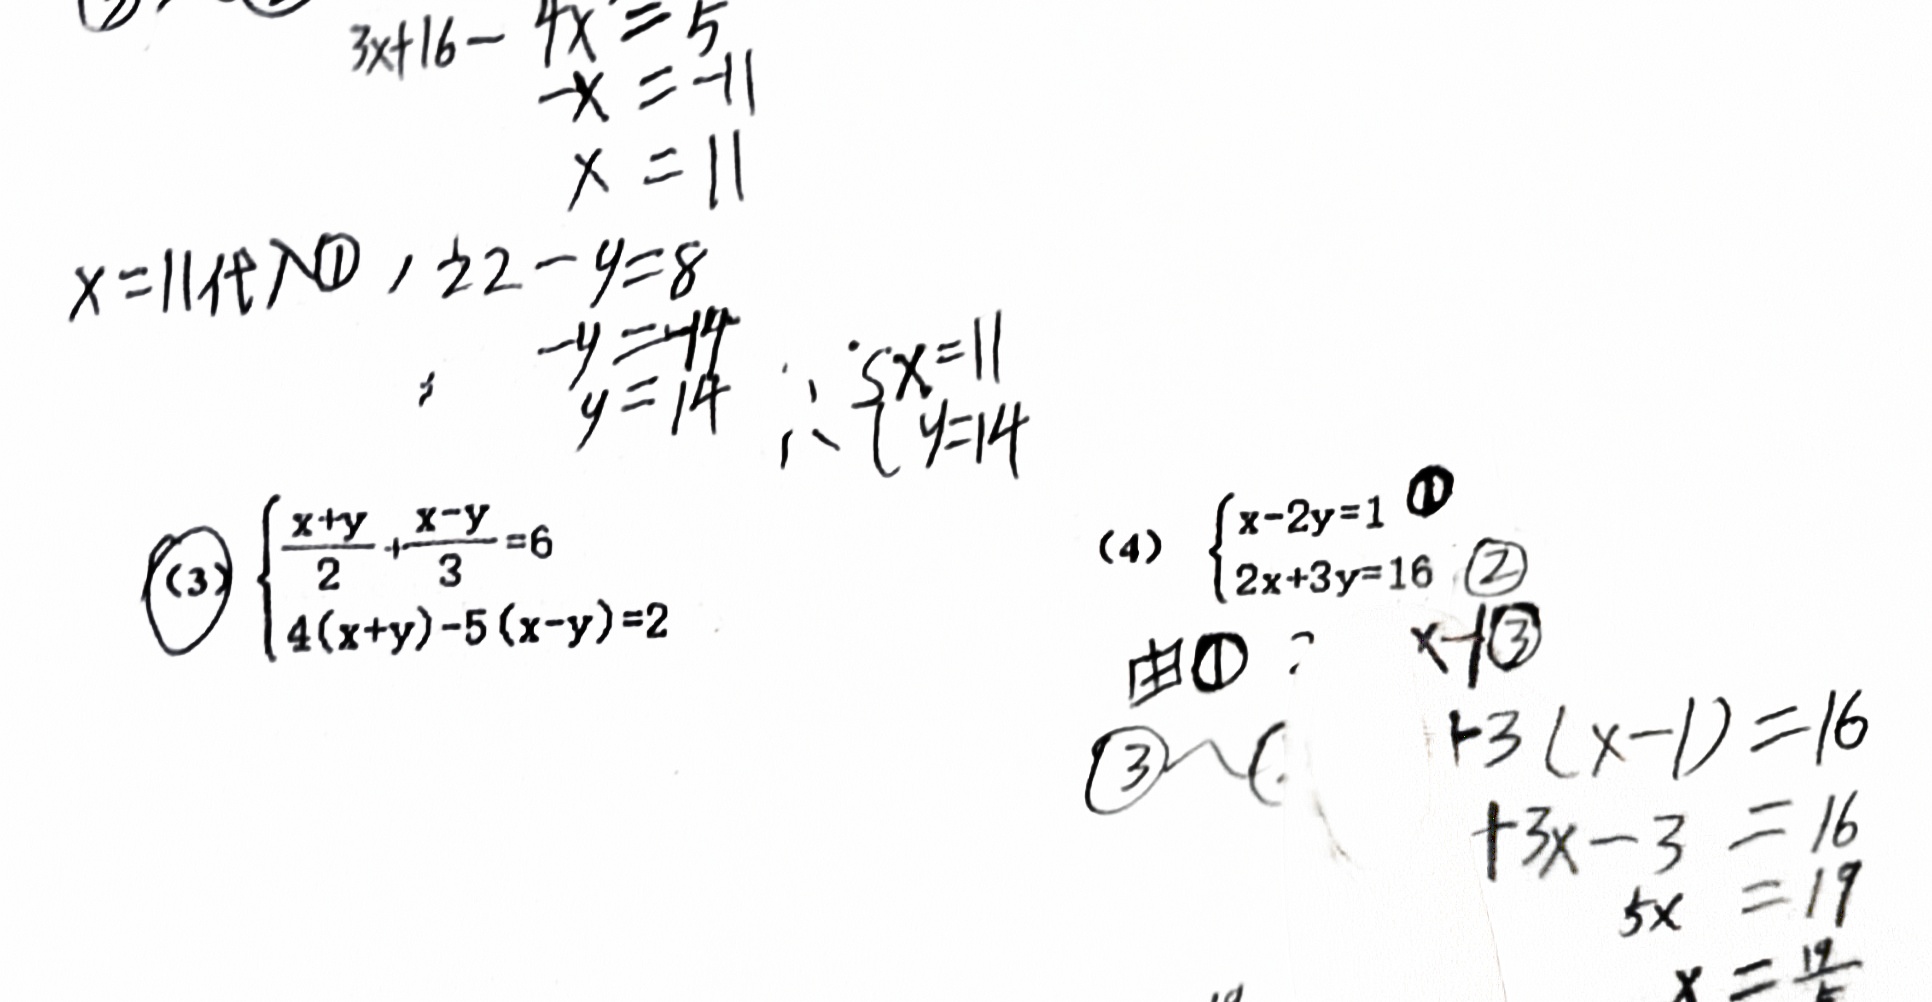 3x+16-4x=5
-x=-11
x=11
x=11代入①, 22-y=8
-y=-14
y=14
∴{x=11
y=14
(3) {(x+y)/2+(x-y)/3=6
4(x+y)-5(x-y)=2
(4) {x-2y=1 ①
2x+3y=16 ②
由① x-1③
③ +3(x-1)=16
+3x-3=16
5x=19
x=19/5